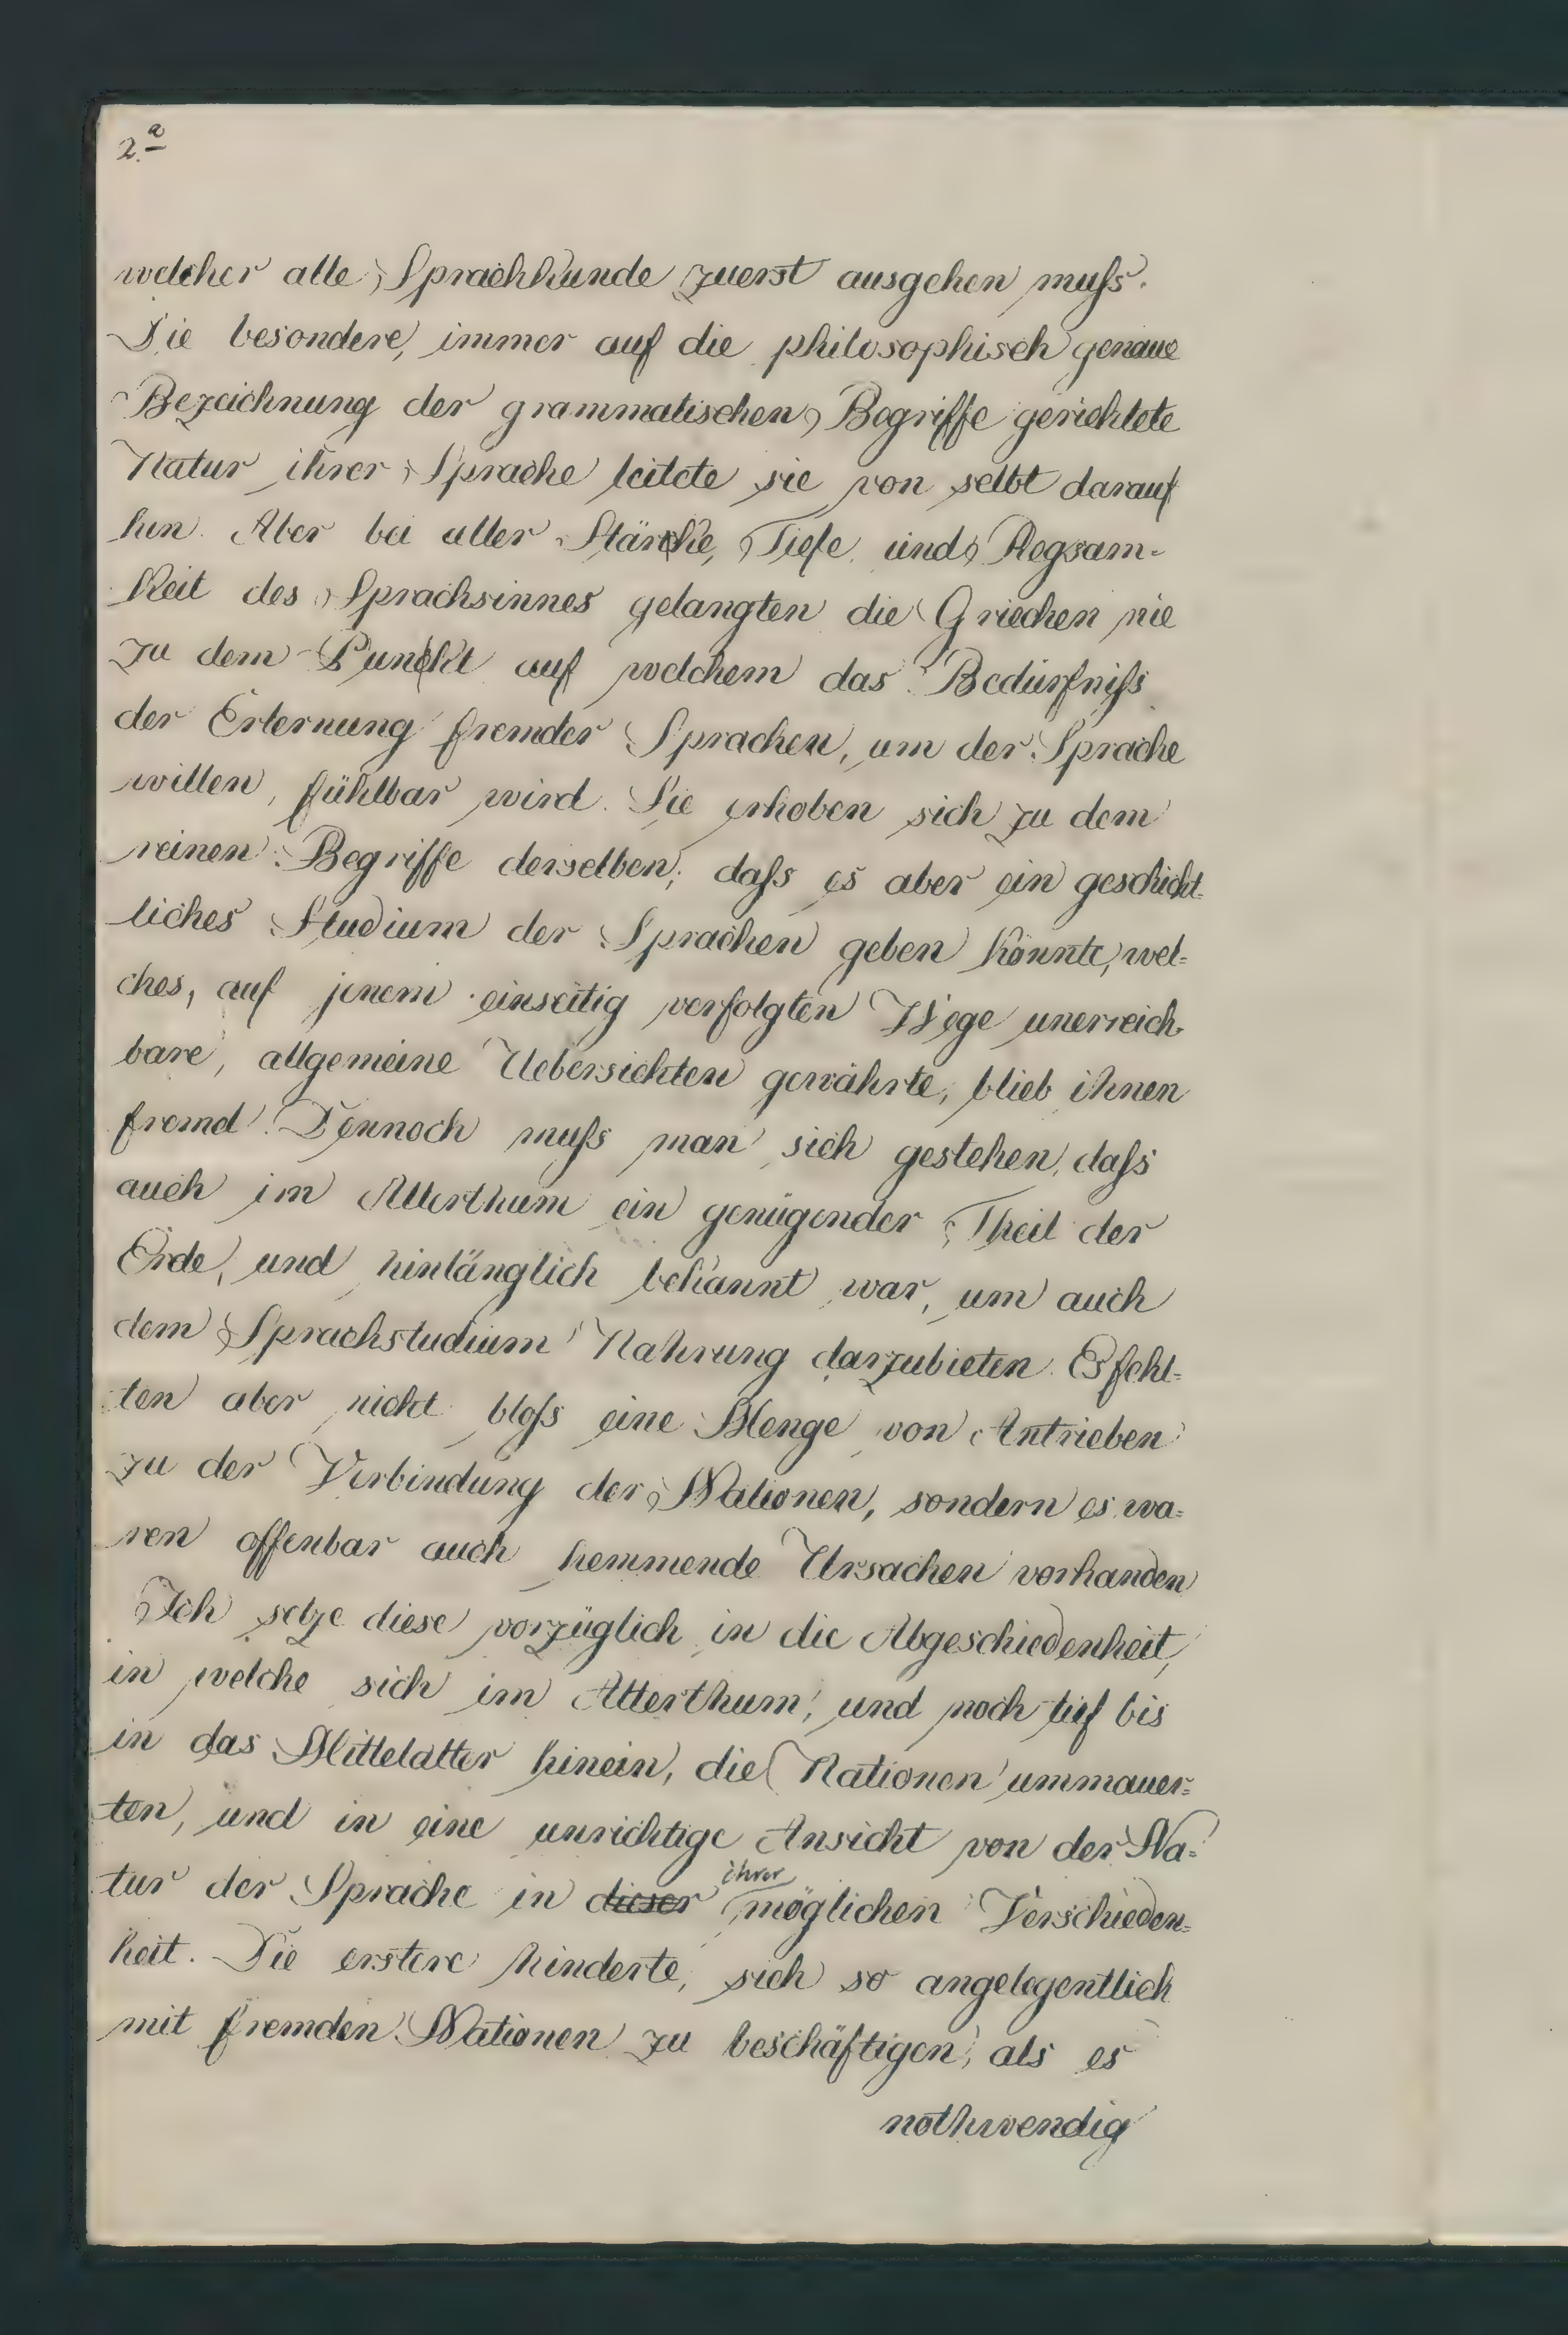 2.a
welcher alle Sprachkunde zuerst ausgehen muſs.
Die besondere, immer auf die philosophisch genaue
Bezeichnung der grammatischen Begriffe gerichtete
Natur ihrer Sprache leitete sie von selbt darauf
hin. Aber bei aller Stärke, Tiefe und Regsam-
keit des Sprachsinnes gelangten die Griechen nie
zu dem Punkt auf welchem das Bedürfniſs
der Erlernung fremder Sprachen, um der Sprache
willen, fühlbar wird. Sie erhoben sich zu dem
reinen Begriffe derselben; daſs es aber ein geschicht-
liches Studium der Sprachen geben könnte, wel-
ches, auf jenem einseitig verfolgten Wege unerreich-
bare, allgemeine Uebersichten gewährte, blieb ihnen
fremd. Dennoch muſs man sich gestehen, daſs
auch im Alterthum ein genügender Theil der
Erde, und hinlänglich bekannt war, um auch
dem Sprachstudium Nahrung darzubieten. Es fehl-
ten aber nicht bloſs eine Menge von Antrieben
zu der Verbindung der Nationen, sondern es wa-
ren offenbar auch hemmende Ursachen vorhanden
Ich setze diese vorzüglich in die Abgeschiedenheit,
in welche sich im Alterthum, und noch tief bis
in das Mittelalter hinein, die Nationen ummauer-
ten, und in eine unrichtige Ansicht von der Na-
tur der Sprache in dieser ihrer möglichen Verschieden-
heit. Die erstere hinderte, sich so angelegentlich
mit fremden Nationen zu beschäftigen, als es
nothwendig